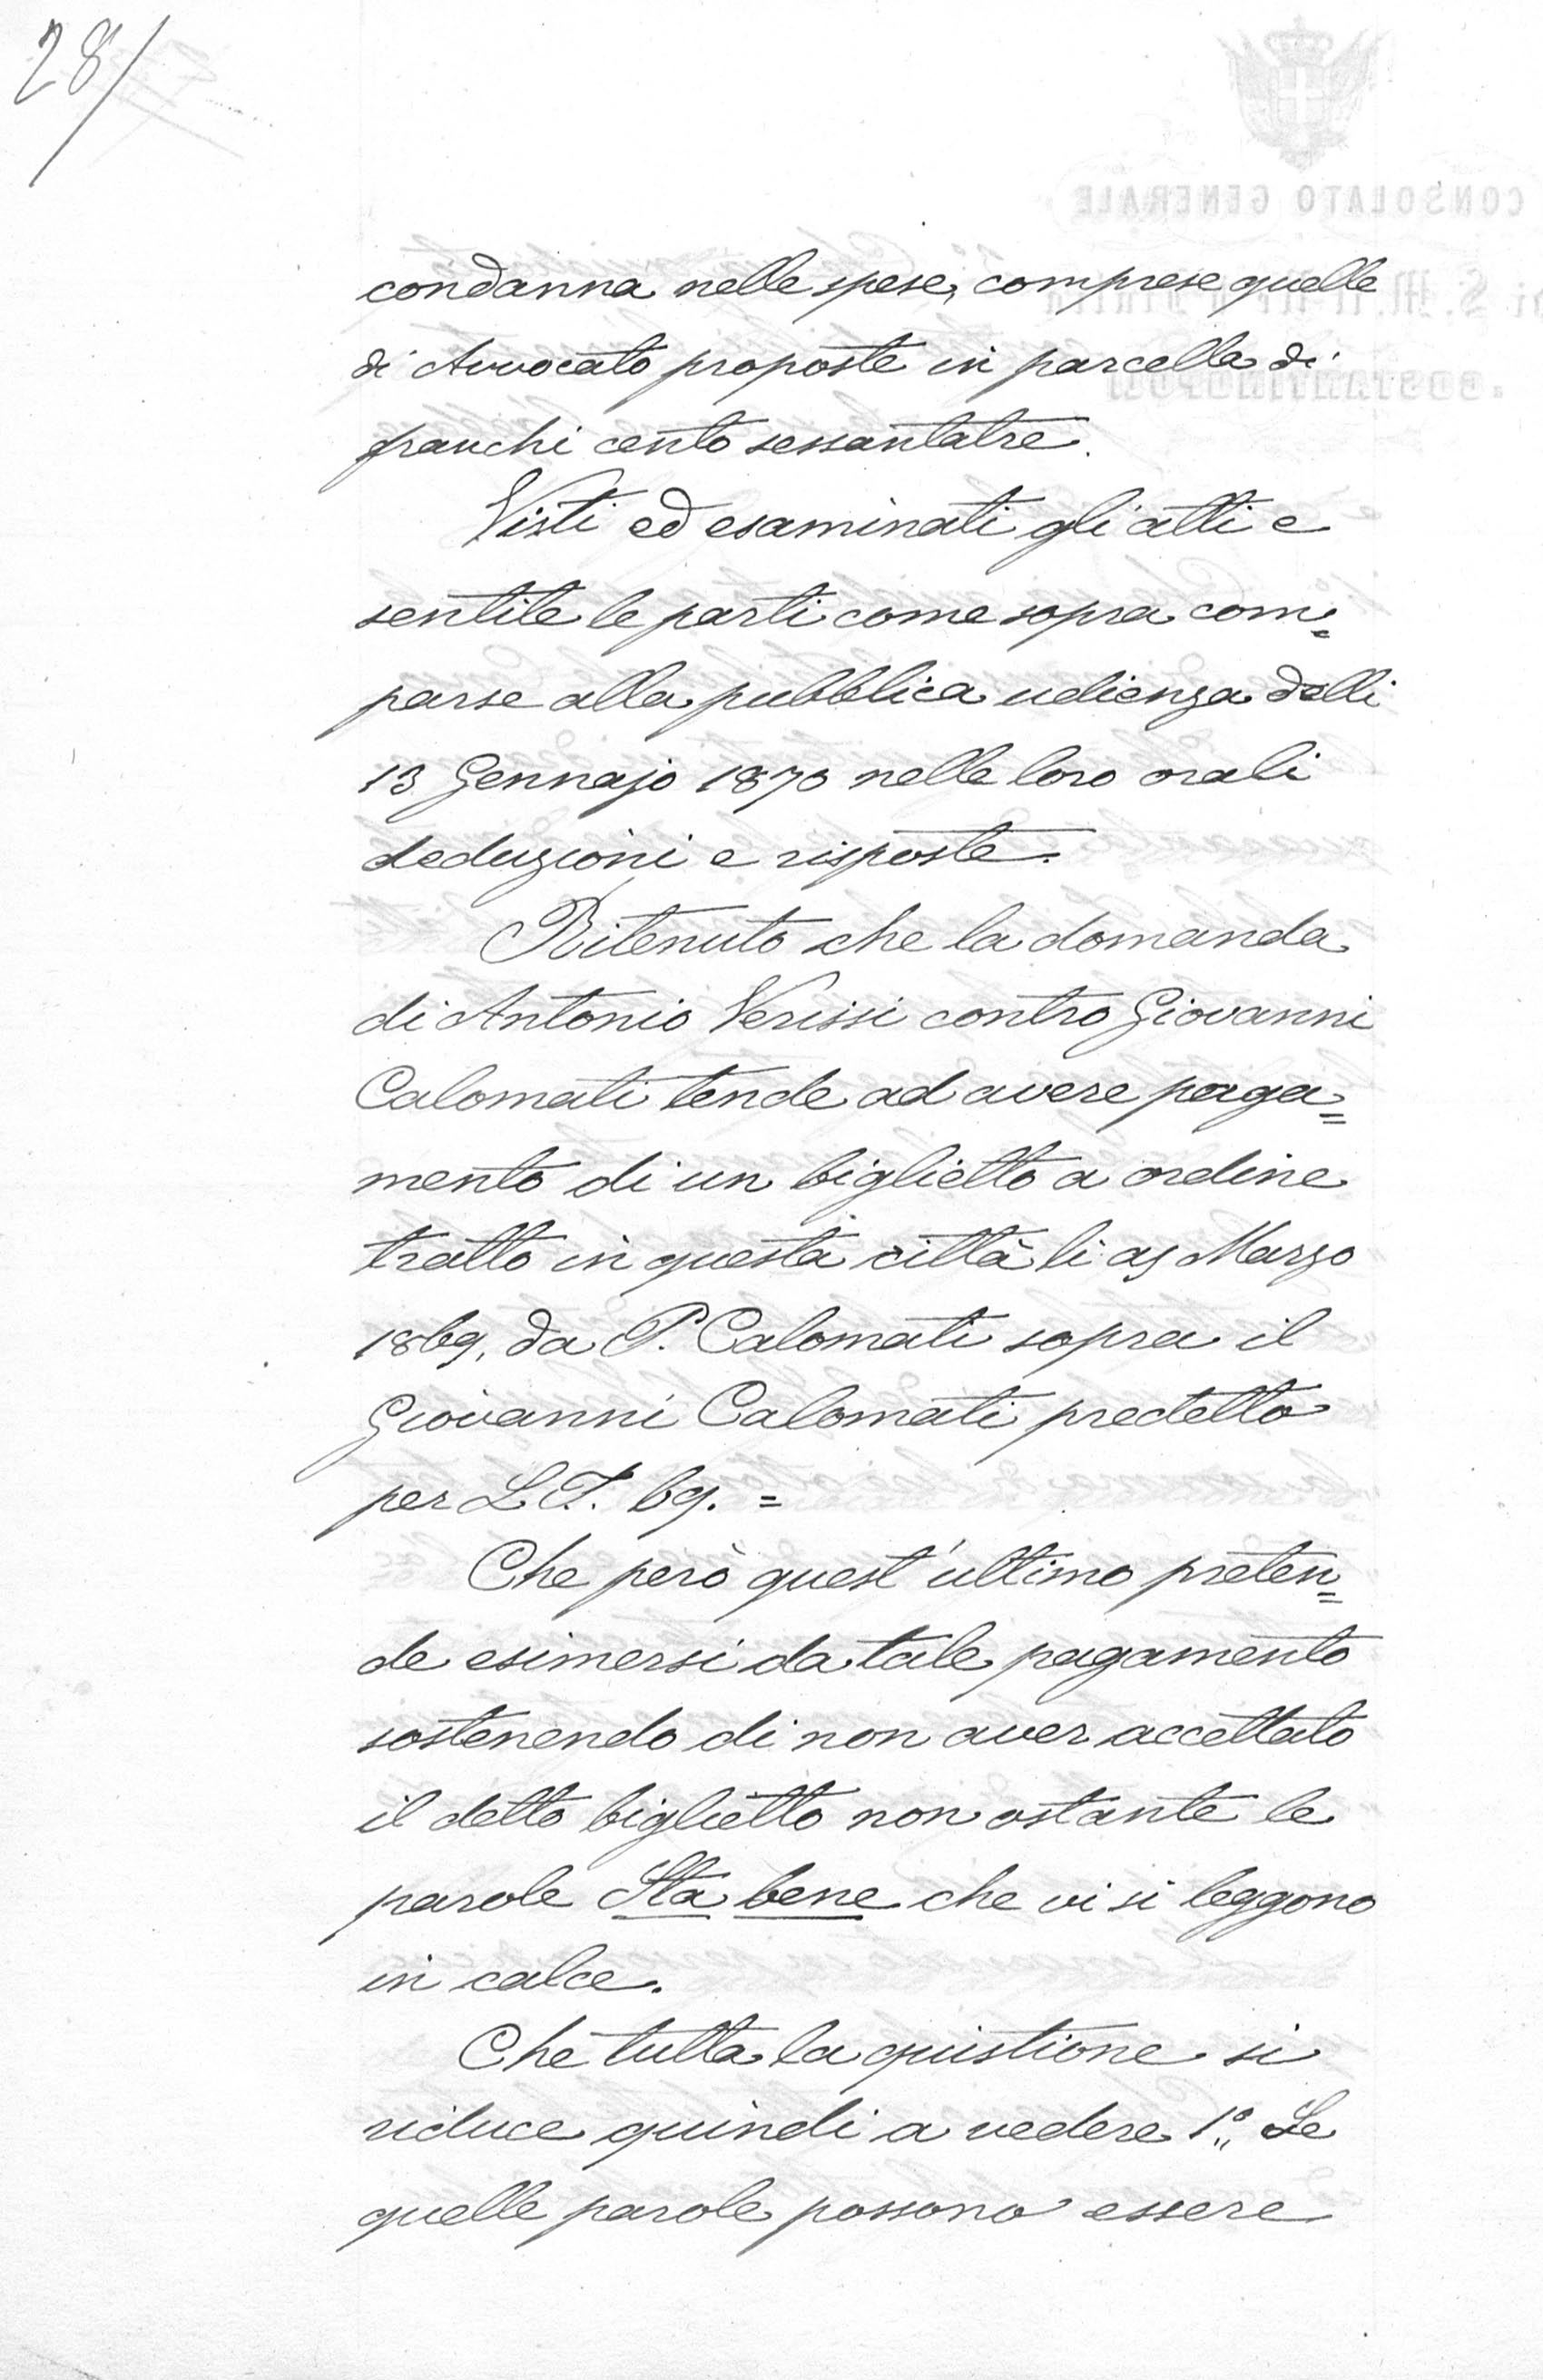 28/
CONSOLATO GENERALE
condanna nelle spese, comprese quelle
di Avvocato proposte in parcella di
franchi cento sessantatre.
Visti ed esaminati gli atti e
sentite le parti come sopra com=
parse alla pubblica udienza delli
13 Gennajo 1870 nelle loro orali
deduzioni e risposte.
Ritenuto che la domanda
di Antonio Verissi contro Giovanni
Calomati tende ad avere paga=
mento di un biglietto a ordine
tratto in questa città li Marzo
1869, da P. Calomati sopra il
Giovanni Calomati predetto
per L T. 69. =
Che però quest'ultimo preten=
de esimersi da tale pagamento
sostenendo di non aver accettato
il detto biglietto non ostante le
parole Sta bene che vi si leggono
in calce.
Che tutta la quistione si
riduce quindi a vedere 1° Se
quelle parole possono essere